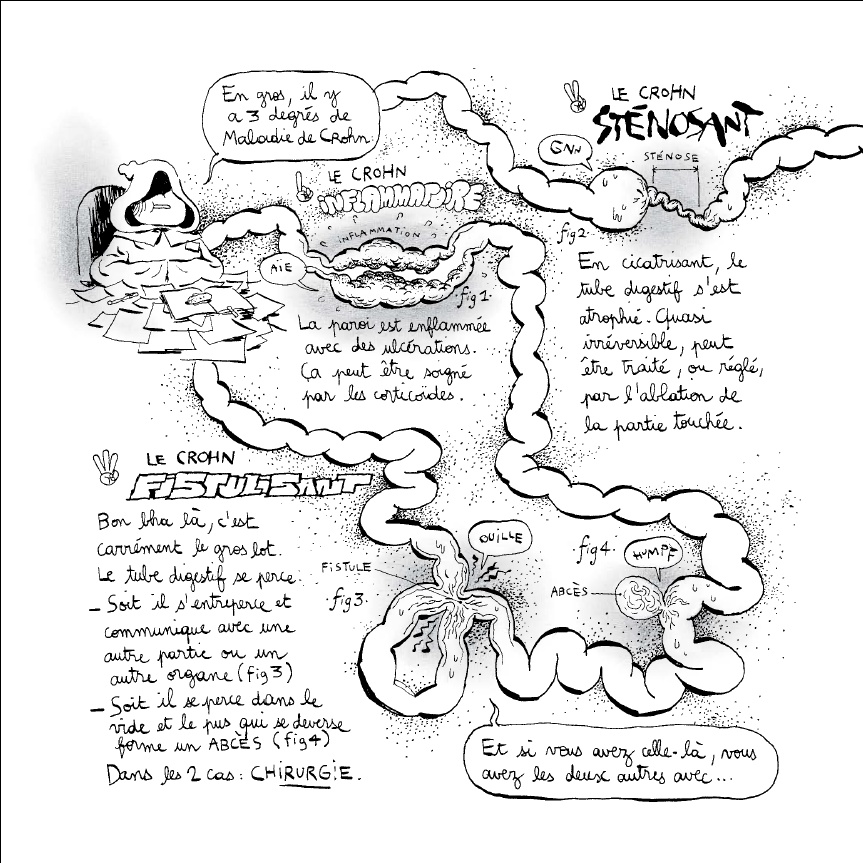 En gros, il y
a 3 degrés de
Maladie de Crohn.
LE CROHN
INFLAMMATOIRE
INFLAMMATION
AÏE
fig 1.
La paroi est enflammée
avec des ulcérations.
Ça peut être soigné
par les corticoïdes.
LE CROHN
STÉNOSANT
GNN
STÉNOSE
fig 2.
En cicatrisant, le
tube digestif s'est
atrophié. Quasi
irréversible, peut
être traité, ou réglé,
par l'ablation de
la partie touchée.
LE CROHN
FISTULISANT
Bon bha là, c'est
carrément le gros lot.
Le tube digestif se perce.
- Soit il s'entreperce et
communique avec une
autre partie ou un
autre organe (fig 3)
- Soit il se perce dans le
vide et le pus qui se déverse
forme un ABCÈS (fig 4)
Dans les 2 cas : CHIRURGIE.
FISTULE
fig 3.
OUILLE
fig 4.
HUMPF
ABCÈS
Et si vous avez celle-là, vous
avez les deux autres avec...